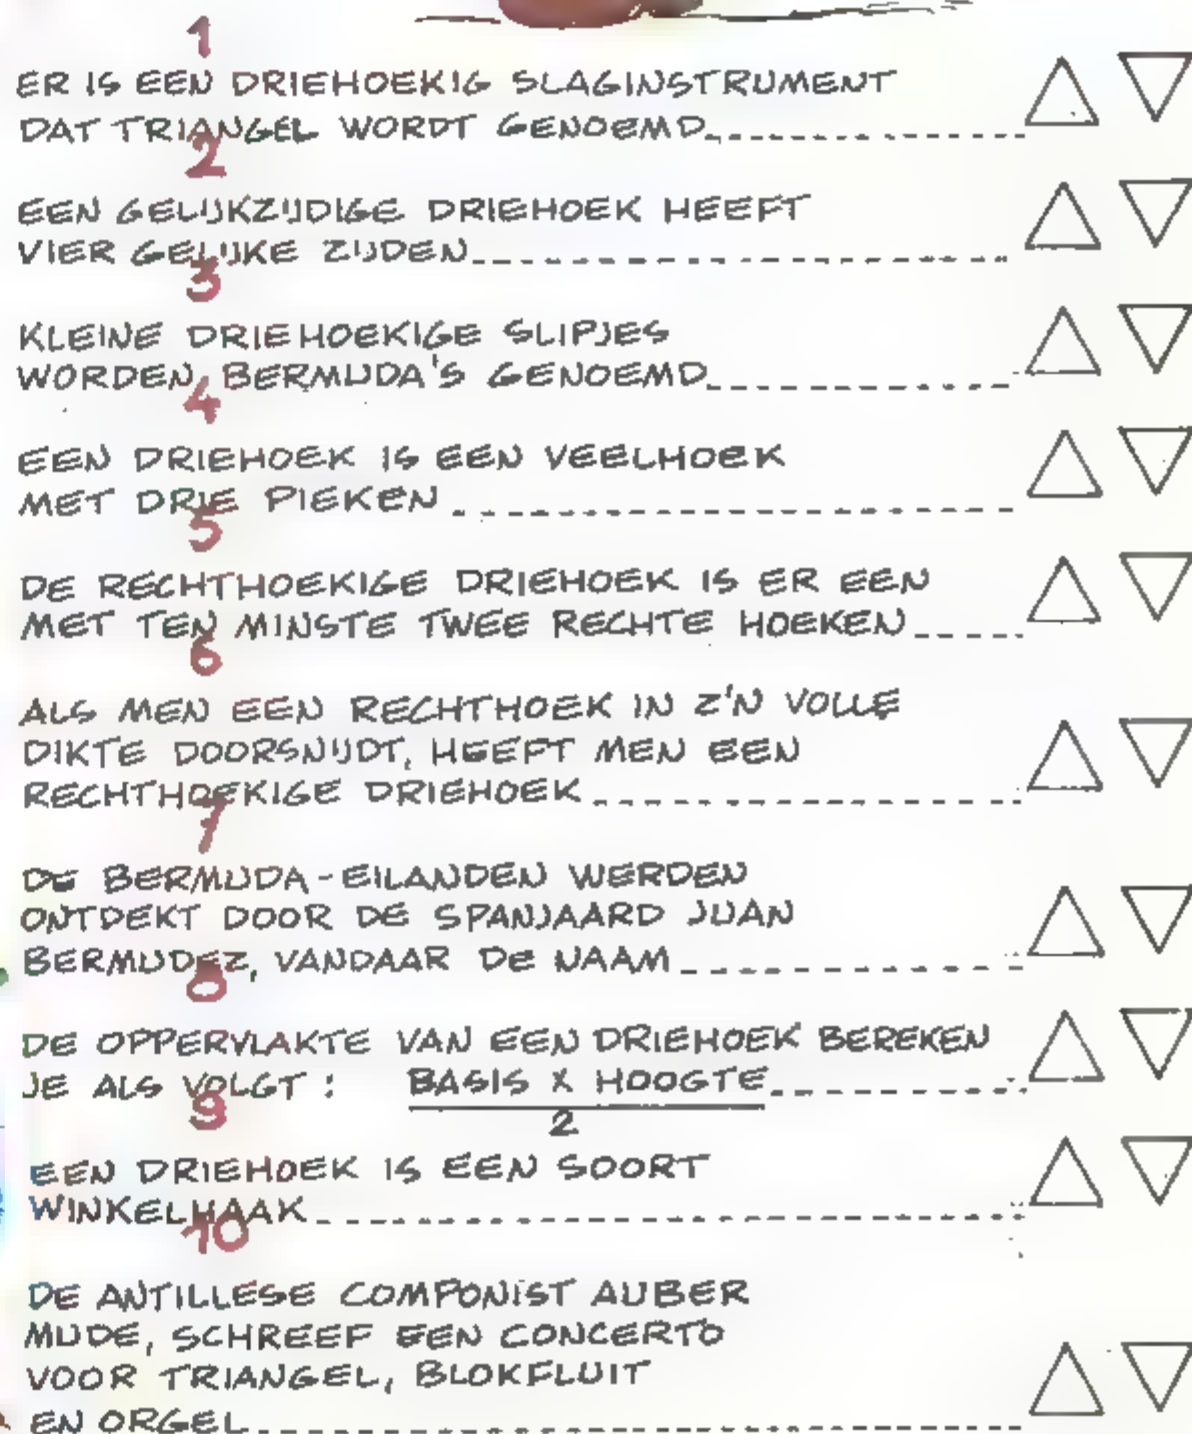 1
ER IS EEN DRIEHOEKIG SLAGINSTRUMENT
DAT TRIANGEL WORDT GENOEMD
2
EEN GELIJKZIJDIGE DRIEHOEK HEEFT
VIER GELIJKE ZIJDEN
3
KLEINE DRIEHOEKIGE SLIPJES
WORDEN BERMUDA'S GENOEMD
4
EEN DRIEHOEK IS EEN VEELHOEK
MET DRIE PIEKEN
5
DE RECHTHOEKIGE DRIEHOEK IS ER EEN
MET TEN MINSTE TWEE RECHTE HOEKEN
6
ALS MEN EEN RECHTHOEK IN Z'N VOLLE
DIKTE DOORSNIJDT, HEEFT MEN EEN
RECHTHOEKIGE DRIEHOEK
7
DE BERMUDA-EILANDEN WERDEN
ONTDEKT DOOR DE SPANJAARD JUAN
BERMUDEZ, VANDAAR DE NAAM
8
DE OPPERVLAKTE VAN EEN DRIEHOEK BEREKEN
JE ALS VOLGT : BASIS X HOOGTE
2
9
EEN DRIEHOEK IS EEN SOORT
WINKELHAAK
10
DE ANTILLESE COMPONIST AUBER
MUDE, SCHREEF EEN CONCERTO
VOOR TRIANGEL, BLOKFLUIT
EN ORGEL